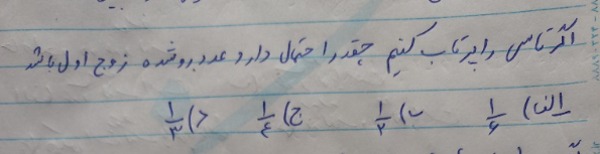 اگر تاسی را پرتاب کنیم چقدر احتمال دارد عدد رو شده زوج اول باشد
الف) ۱/۶ ب) ۱/۲ ج) ۱/۴ د) ۱/۳